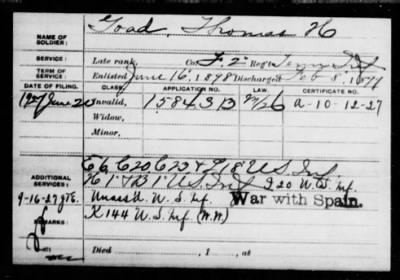 NAME OF SOLDIER: Goad, Thomas H
SERVICE: Late rank, Co. F. 2" Reg't Tenn Inf
TERM OF SERVICE: Enlisted June 16, 1898 Discharged Feb 8, 1899
DATE OF FILING. CLASS. APPLICATION NO. LAW. CERTIFICATE NO.
1927 June 20 Invalid, 1584313 A-10-12-27
Widow,
Minor,
ADDITIONAL SERVICES: E 6, C 20 C 23 & F 18 U.S. Inf.
H 1 & B 1 U.S. Inf I 20 U.S. Inf.
9-16-27 Unass'd U.S. Inf War with Spain.
REMARKS: K 144 U.S. Inf (W.W.)
Died , 1 , at